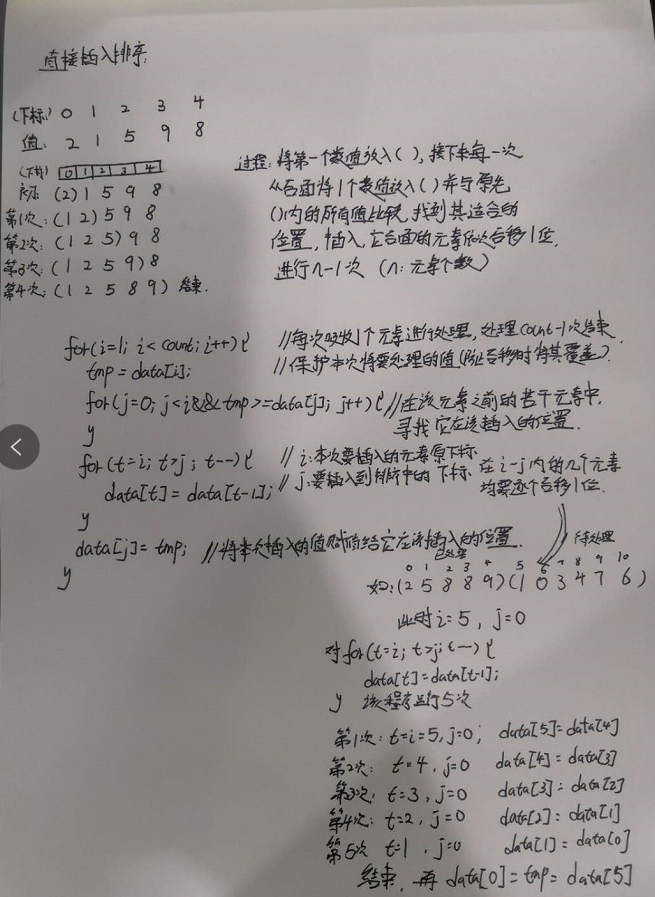 直接插入排序:
(下标) 0 1 2 3 4
值: 2 1 5 9 8
(下标) 0 1 2 3 4
初始 (2) 1 5 9 8
第1次: (1 2) 5 9 8
第2次: (1 2 5) 9 8
第3次: (1 2 5 9) 8
第4次: (1 2 5 8 9) 结束.
过程: 将第一个数值放入( ), 接下来每一次
从后面将1个数值放入( )并与原先
()内的所有值比较, 找到其适合的
位置, 插入, 它后面的元素依次后移1位.
进行n-1次 (n: 元素个数)
for(i=1; i<count; i++){ //每次吸收1个元素进行处理, 处理count-1次结束.
tmp = data[i]; //保护本次将要处理的值(防止后移时将其覆盖).
for(j=0; j<i&&tmp>=data[j]; j++){ //在该元素之前的若干元素中,
寻找它应该插入的位置.
}
for(t=i; t>j; t--){ // i:本次要插入的元素原下标.
data[t] = data[t-1]; // j:要插入到排序中的下标. 在i-j内的几个元素
均要逐个后移1位.
}
data[j] = tmp; //将本次插入的值赋值给它应该插入的位置.
}
已处理 待处理
0 1 2 3 4 5 6 7 8 9 10
如:(2 5 8 8 9)(1 0 3 4 7 6)
此时i=5, j=0
对for(t=i; t>j; t--){
data[t]=data[t-1];
} 该程序运行5次
第1次: t=i=5, j=0; data[5]=data[4]
第2次: t=4, j=0 data[4]=data[3]
第3次: t=3, j=0 data[3]=data[2]
第4次: t=2, j=0 data[2]=data[1]
第5次 t=1, j=0 data[1]=data[0]
结束, 再 data[0]=tmp=data[5]